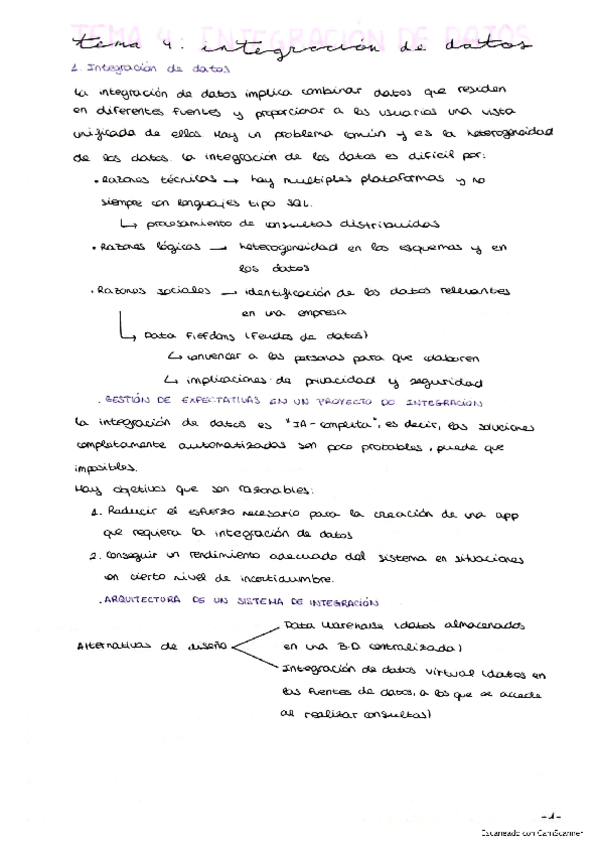 TEMA 4: INTEGRACIÓN DE DATOS
tema 4: integración de datos
1. Integración de datos
La integración de datos implica combinar datos que residen
en diferentes fuentes y proporcionar a los usuarios una vista
unificada de ellos. Hay un problema común y es la heterogeneidad
de los datos. La integración de los datos es difícil por:
• Razones técnicas → hay multiples plataformas y no
siempre con lenguajes tipo SQL.
↳ procesamiento de consultas distribuidas
• Razones lógicas → heterogeneidad en los esquemas y en
los datos
• Razones sociales → identificación de los datos relevantes
en una empresa
↳ Data Fiefdoms (Feudos de datos)
↳ convencer a las personas para que colaboren
↳ implicaciones de privacidad y seguridad
. GESTIÓN DE EXPECTATIVAS EN UN PROYECTO DO INTEGRACIÓN
La integración de datos es "IA-completa", es decir, las soluciones
completamente automatizadas son poco probables, puede que
imposibles.
Hay objetivos que son razonables:
1. Reducir el esfuerzo necesario para la creación de una app
que requiera la integración de datos
2. Conseguir un rendimiento adecuado del sistema en situaciones
en cierto nivel de incertidumbre.
. ARQUITECTURA DE UN SISTEMA DE INTEGRACIÓN
Alternativas de diseño
Data Warehouse (datos almacenados
en una B.D centralizada)
Integración de datos virtual (datos en
las fuentes de datos, a los que se accede
al realizar consultas)
-1-
Escaneado con CamScanner